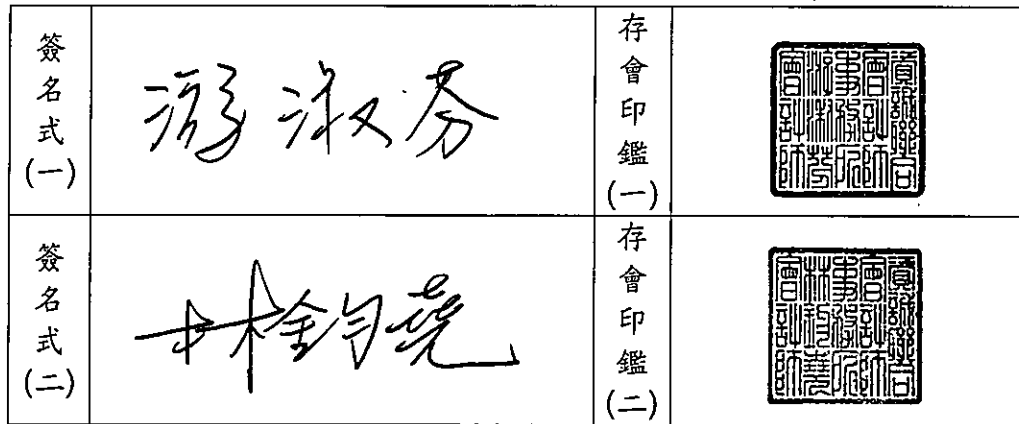 簽名式(一)
游淑芬
存會印鑑(一)
資誠聯合
會計師
事務所
游淑芬
會計師
簽名式(二)
林鈞堯
存會印鑑(二)
資誠聯合
會計師
事務所
林鈞堯
會計師